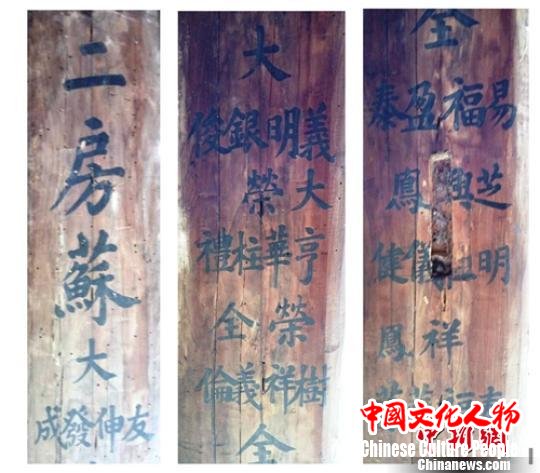 二房蘇
大
成發伸友
大
俊銀明義
榮大
禮柱華亨
全榮
倫義祥樹
全
全
泰盈福易
鳳興芝
健儀明
鳳祥
中国文化人物
Chinese Culture People
Chinanews.com